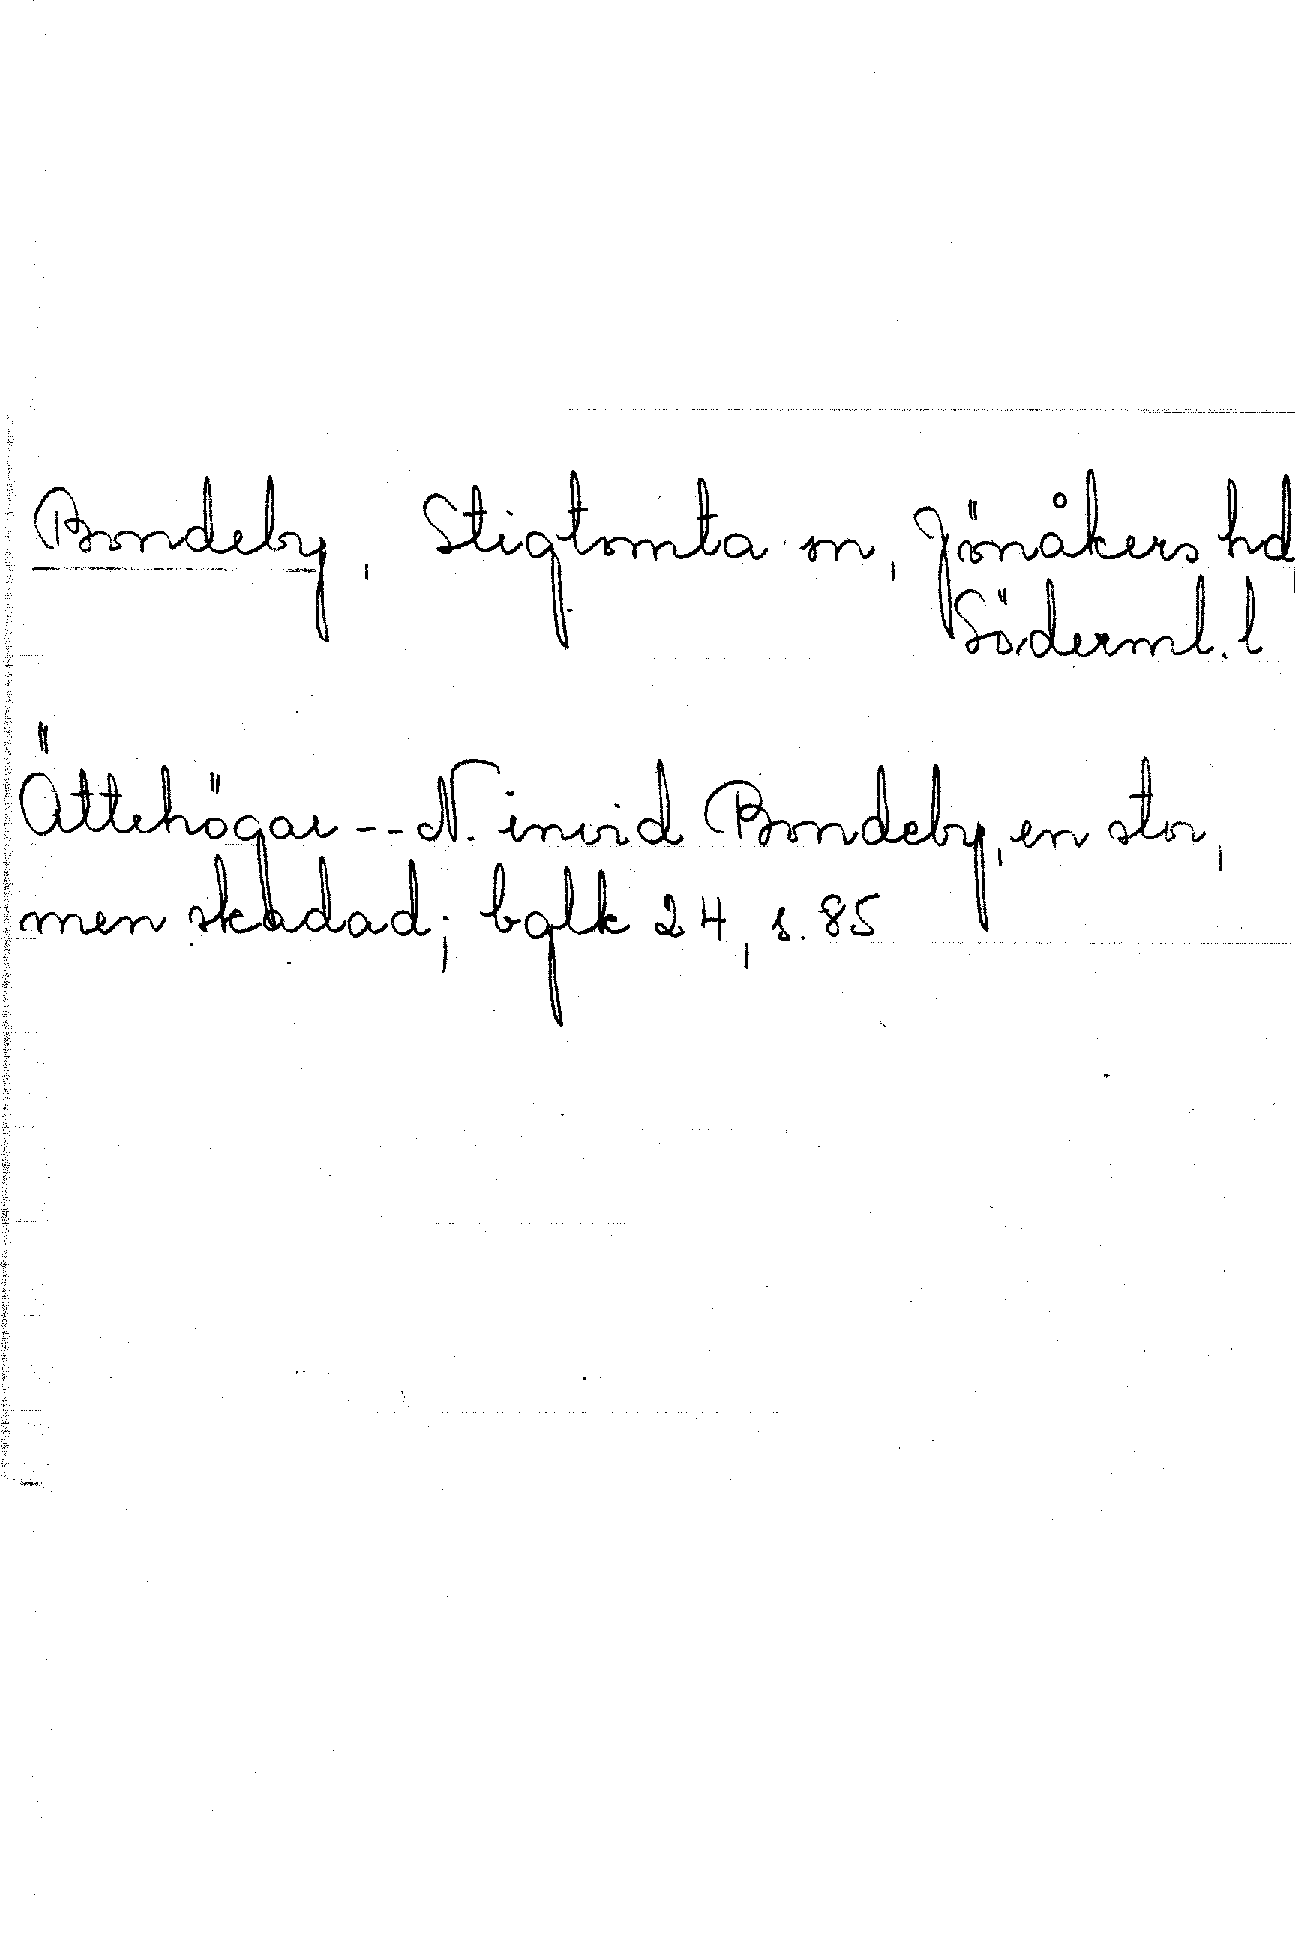 Bondeby, Stigtomta sn, Jönåkers hd,
Söderml. l
Ättehögar -- N. invid Bondeby, en stor,
men skadad; bglk 24, s. 85